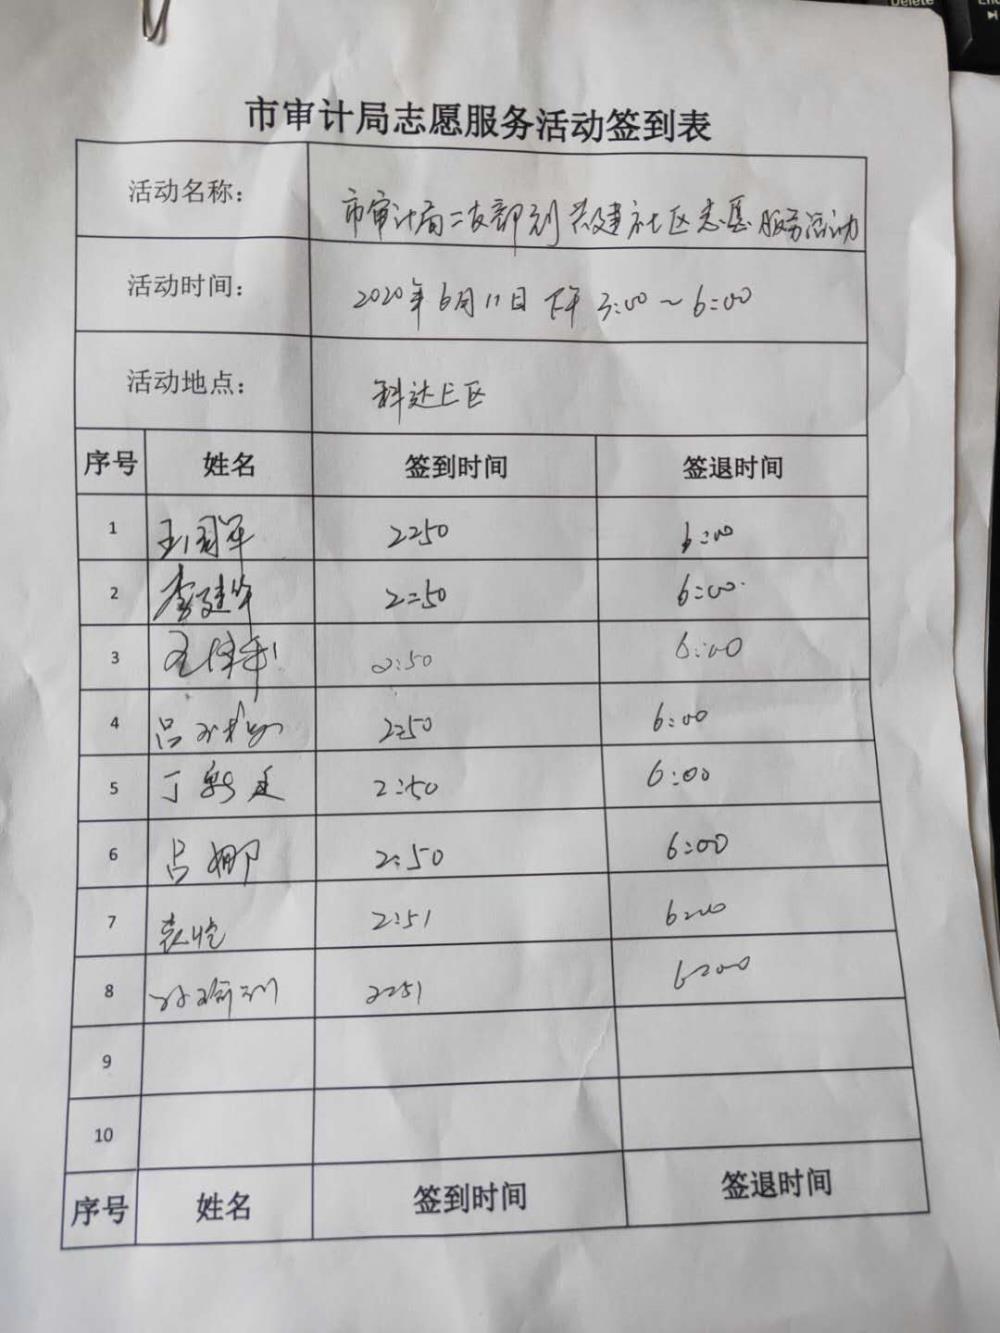 Delete
End
市审计局志愿服务活动签到表
活动名称： 市审计局二支部到共建社区志愿服务活动
活动时间： 2020年6月11日 下午 3:00～6:00
活动地点： 科达上区
序号 姓名 签到时间 签退时间
1 王国军 2:50 6:00
2 李建华 2:50 6:00
3 2:50 6:00
4 吕 2:50 6:00
5 丁 2:50 6:00
6 吕娜 2:50 6:00
7 袁恺 2:51 6:00
8 2:51 6:00
9
10
序号 姓名 签到时间 签退时间